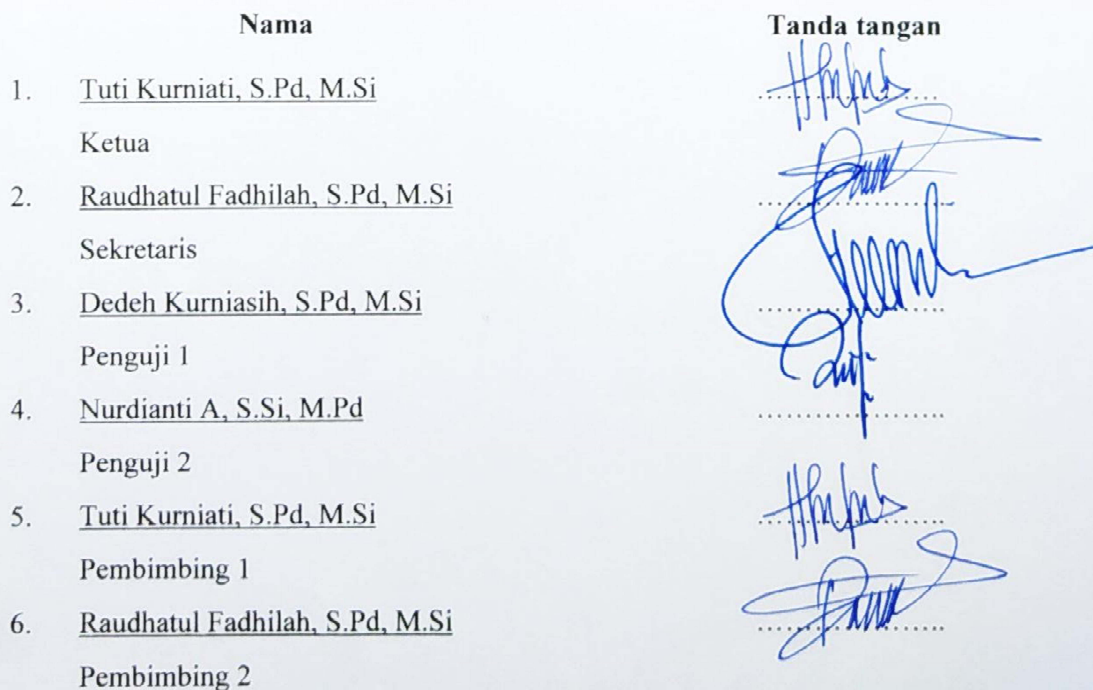 Nama Tanda tangan
1. Tuti Kurniati, S.Pd, M.Si ....................
Ketua
2. Raudhatul Fadhilah, S.Pd, M.Si ....................
Sekretaris
3. Dedeh Kurniasih, S.Pd, M.Si ....................
Penguji 1
4. Nurdianti A, S.Si, M.Pd ....................
Penguji 2
5. Tuti Kurniati, S.Pd, M.Si ....................
Pembimbing 1
6. Raudhatul Fadhilah, S.Pd, M.Si ....................
Pembimbing 2